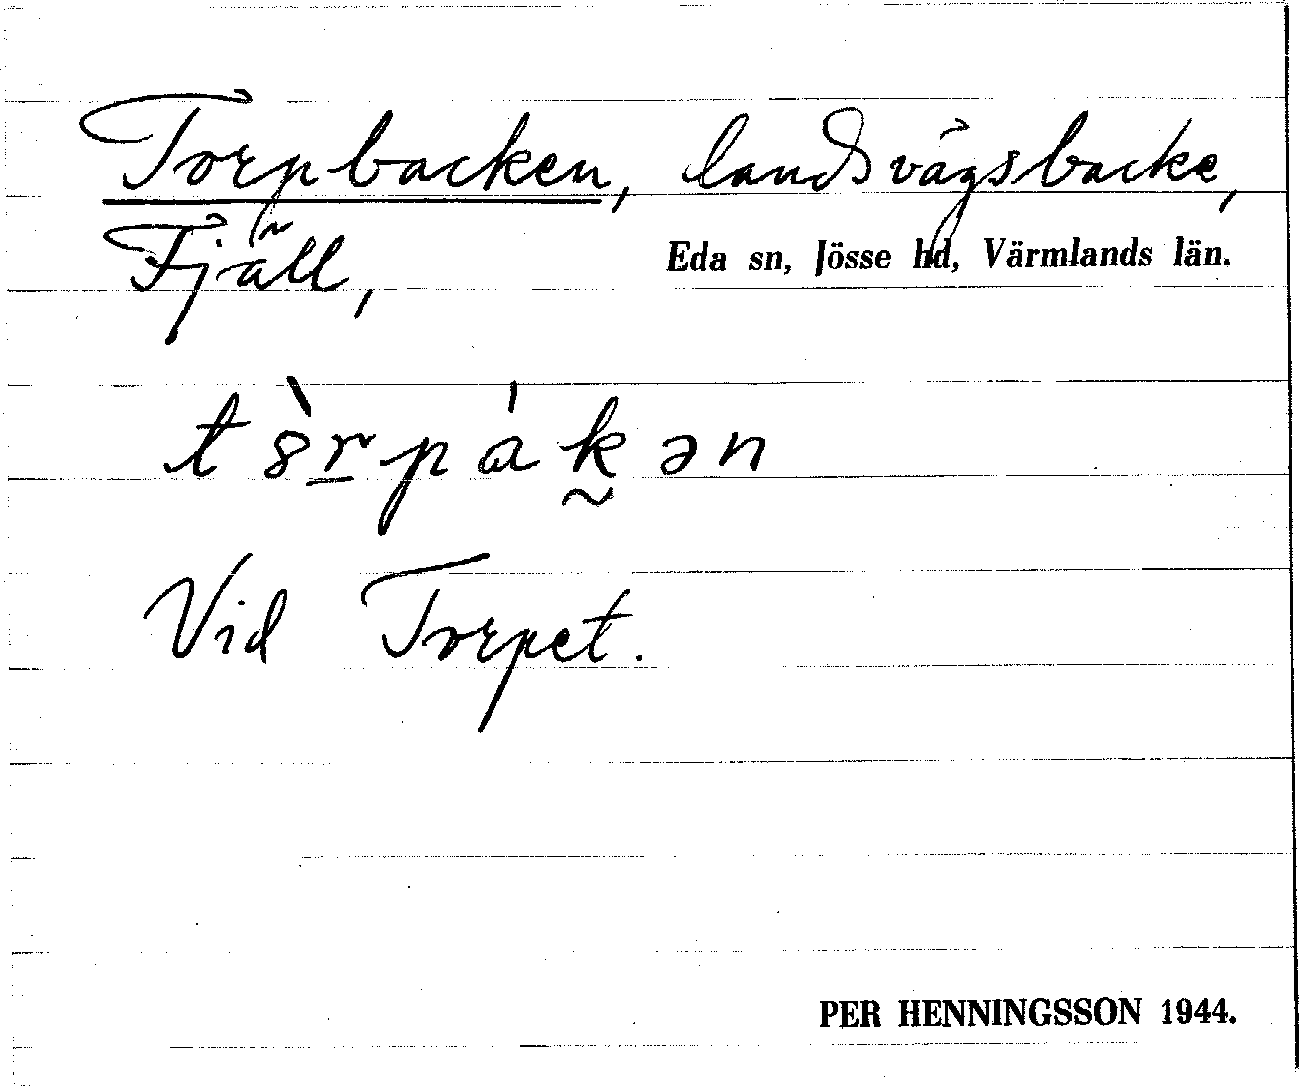 Torpbacken, landsvägsbacke,
Fjäll, Eda sn, Jösse hd, Värmlands län.
t8̀r̲pák̰ən
Vid Torpet.
PER HENNINGSSON 1944.